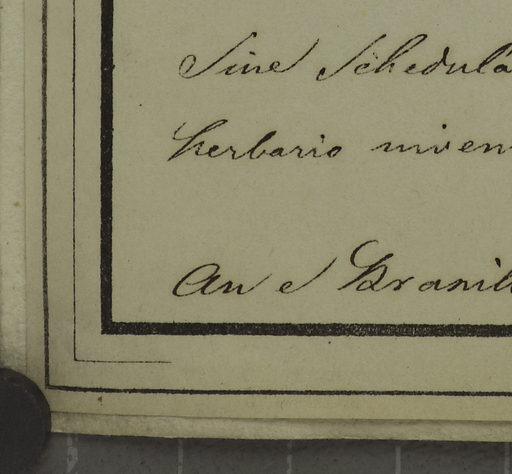 Sine Schedulâ
herbario inven
An e Brasil